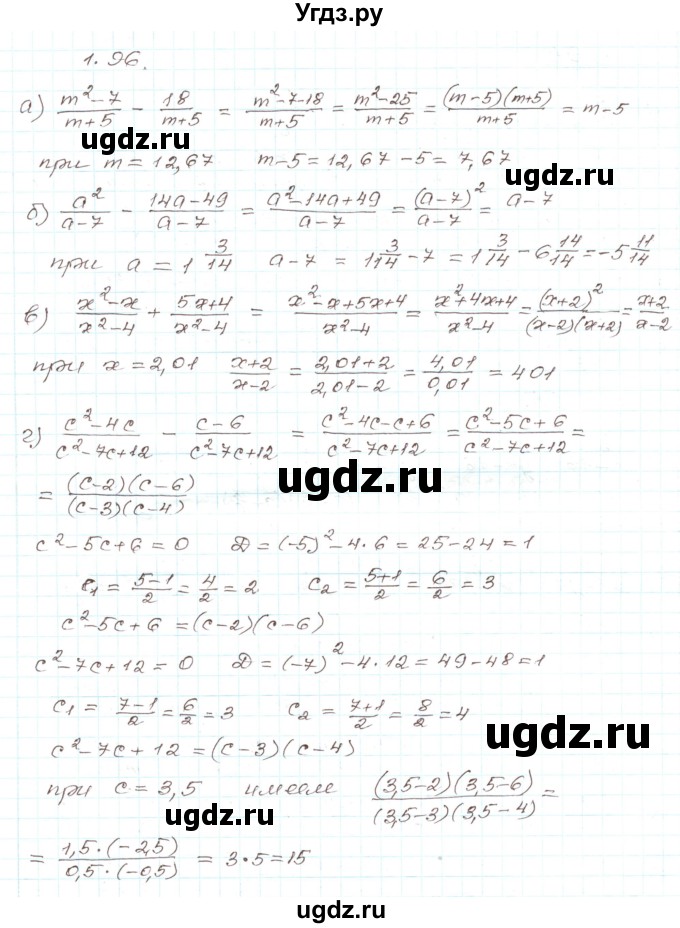 Угдз.ру
1.96.
а) (m²-7)/(m+5) - 18/(m+5) = (m²-7-18)/(m+5) = (m²-25)/(m+5) = ((m-5)(m+5))/(m+5) = m-5
при m = 12,67   m-5 = 12,67-5 = 7,67
б) a²/(a-7) - (14a-49)/(a-7) = (a²-14a+49)/(a-7) = (a-7)²/(a-7) = a-7
при a = 1 3/14   a-7 = 1 3/14 - 7 = 1 3/14 - 6 14/14 = -5 11/14
в) (x²-x)/(x²-4) + (5x+4)/(x²-4) = (x²-x+5x+4)/(x²-4) = (x²+4x+4)/(x²-4) = (x+2)²/((x-2)(x+2)) = (x+2)/(x-2)
при x = 2,01   (x+2)/(x-2) = (2,01+2)/(2,01-2) = 4,01/0,01 = 401
г) (c²-4c)/(c²-7c+12) - (c-6)/(c²-7c+12) = (c²-4c-c+6)/(c²-7c+12) = (c²-5c+6)/(c²-7c+12) =
= ((c-2)(c-6))/((c-3)(c-4))
c²-5c+6=0   D = (-5)²-4·6 = 25-24 = 1
c₁ = (5-1)/2 = 4/2 = 2   c₂ = (5+1)/2 = 6/2 = 3
c²-5c+6 = (c-2)(c-6)
c²-7c+12 = 0   D = (-7)²-4·12 = 49-48 = 1
c₁ = (7-1)/2 = 6/2 = 3   c₂ = (7+1)/2 = 8/2 = 4
c²-7c+12 = (c-3)(c-4)
при c = 3,5   имеем   ((3,5-2)(3,5-6))/((3,5-3)(3,5-4)) =
= (1,5·(-2,5))/(0,5·(-0,5)) = 3·5 = 15
ugdz.ru
ugdz.ru
ugdz.ru
ugdz.ru
ugdz.ru
ugdz.ru
ugdz.ru
ugdz.ru